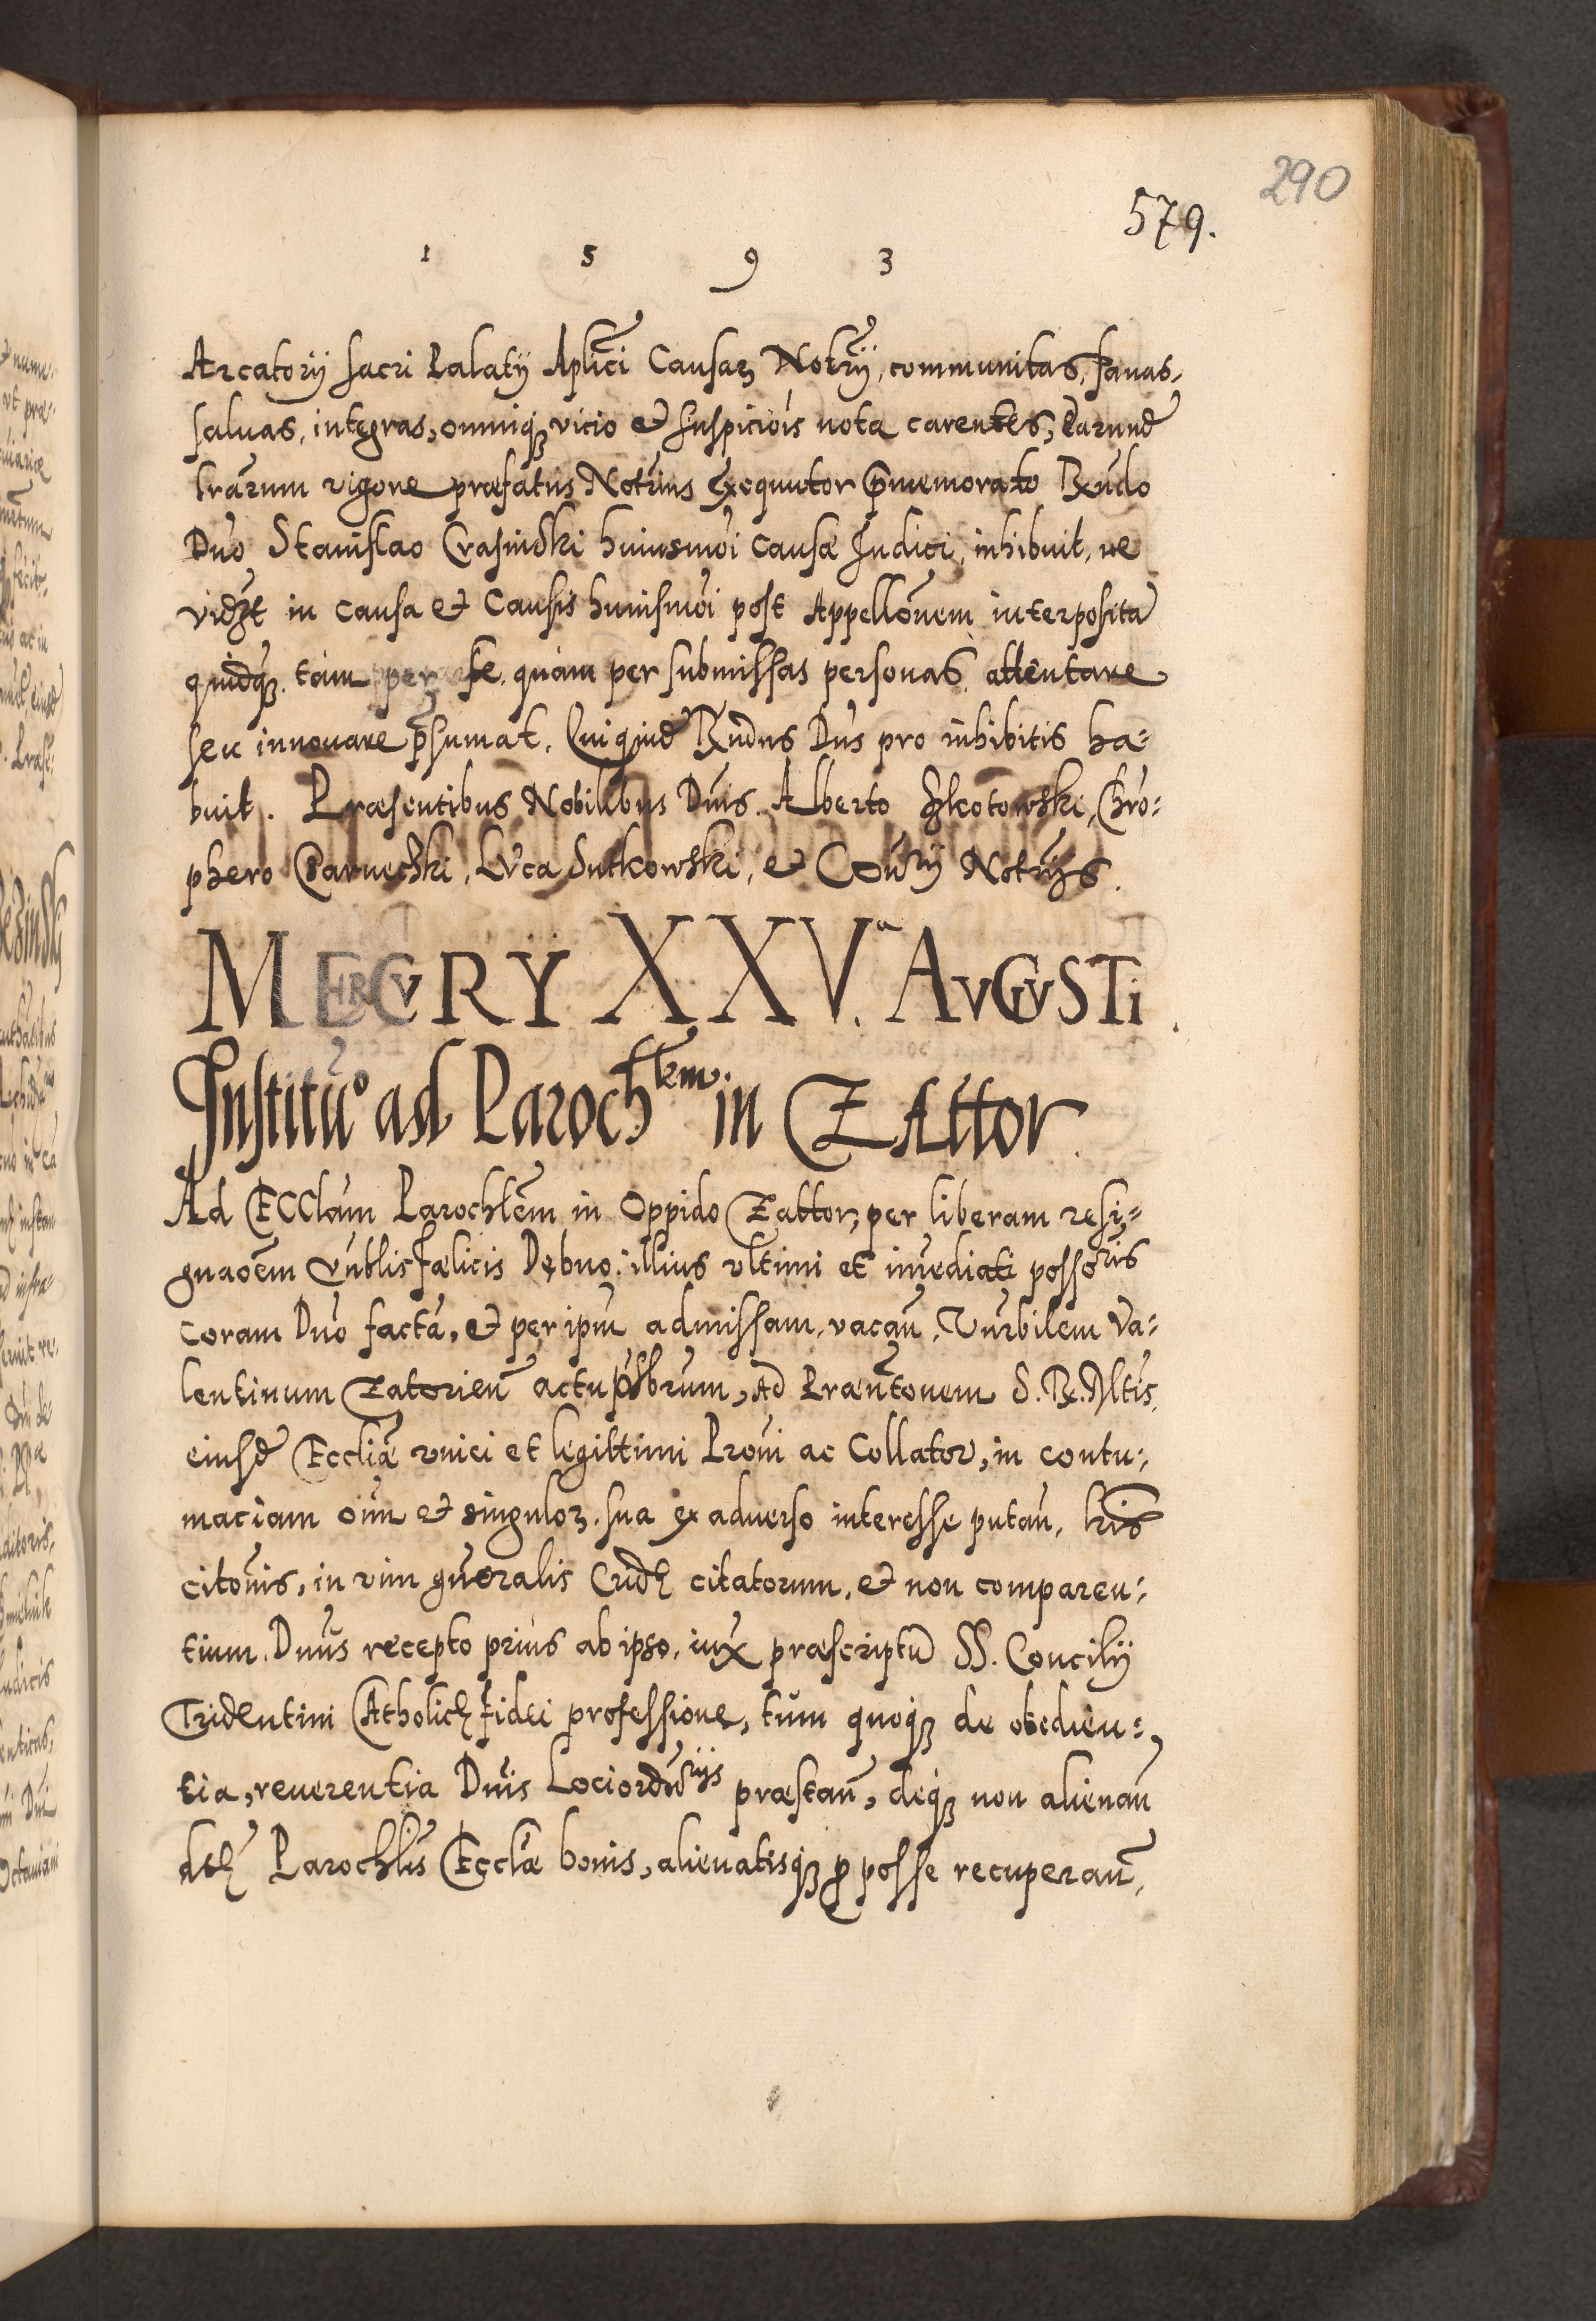 290
579.
1 5 9 3
Arcatorÿ sacri Palatÿ Aplici Causaꝝ Notrÿ, communitas, sanas,
saluas, integras, omniqꝫ vicio et suspiciõis nota carentes, Earund̃
lrãrum vigore præfatus Notrius Exequutor p̃memorato Rñdo
Dño Stanislao Crasinski huiusmõi causæ Judici, inhibuit, ne
in causa et Causis huiusmõi post Appellõnem interposita
quidqꝫ tam per se, quàm per submissas personas, attentare
seu innouare p̃sumat. Qui quid̃ Rñdus Dñs pro inhibitis ha=
buit. Præsentibus Nobilibus Dñis Alberto Chro=
phero Czarnecki, Luca Sutkowski, et Notrÿs.
MERCVRY XXV.ª AVGVSTi.
Institũº ad Parochlem in ZAttor.
Ad ECClãm Parochlẽm in Oppido Zattor, per liberam resi=
gnaõẽm Fælicis Dębno, illius vltimi et im̃ediati possõris
coram Dño factã, et per ipm̃ admissam, vacañ. Va=
lentinum Zatorieñ actu pr̃sbrum, Ad Præñtonem S. R. Mltis,
eiusd̃ Eccliæ vnici et legittimi Proni ac Collator, in contu=
maciam om̃ et singuloꝝ sua ex aduerso interesse putañ, lris
citonis, in vim gñeralis Cridæ citatorum, et non comparen=
tium. Dnus recepto prius ab ipso, iux præscriptũ SS. Concilÿ
Tridentini Catholicę fidei professione, tum quoqꝫ de obedien=
tia, reuerentia Dñis Lociordũrijs præstañ, deqꝫ non alienañ
dctę Parochlis Ecclæ bonis, alienatisqꝫ ꝓ posse recuperañ,